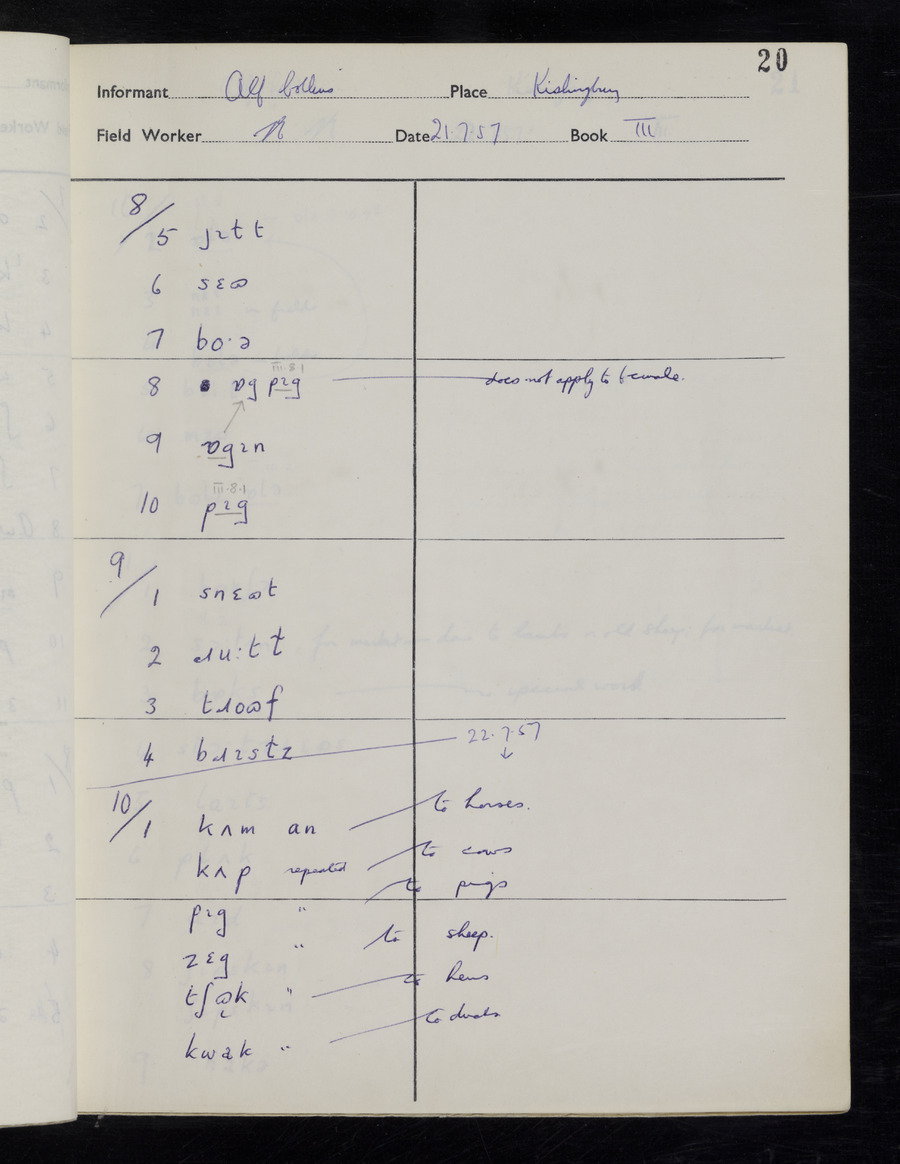 20
Informant Alf Collins Place Kislingbury
Field Worker Date 21.7.57 Book III
8/5 ɟɪtt
6 sɛɷ
7 bo·ə
III·8·1
8 ɒg pɪg does not apply to female.
9 ɒgɪn
III·8·1
10 pɪg
9/1 snɛɷt
2 ɹu:tt
3 tɹoɷf
4 bɹɪstz 22.7.57
↓
10/1 kʌm an to horses.
kʌp repeated to cows
pɪg " to pigs
zɛg " to sheep.
tʃɷk " to hens
kwak " to ducks